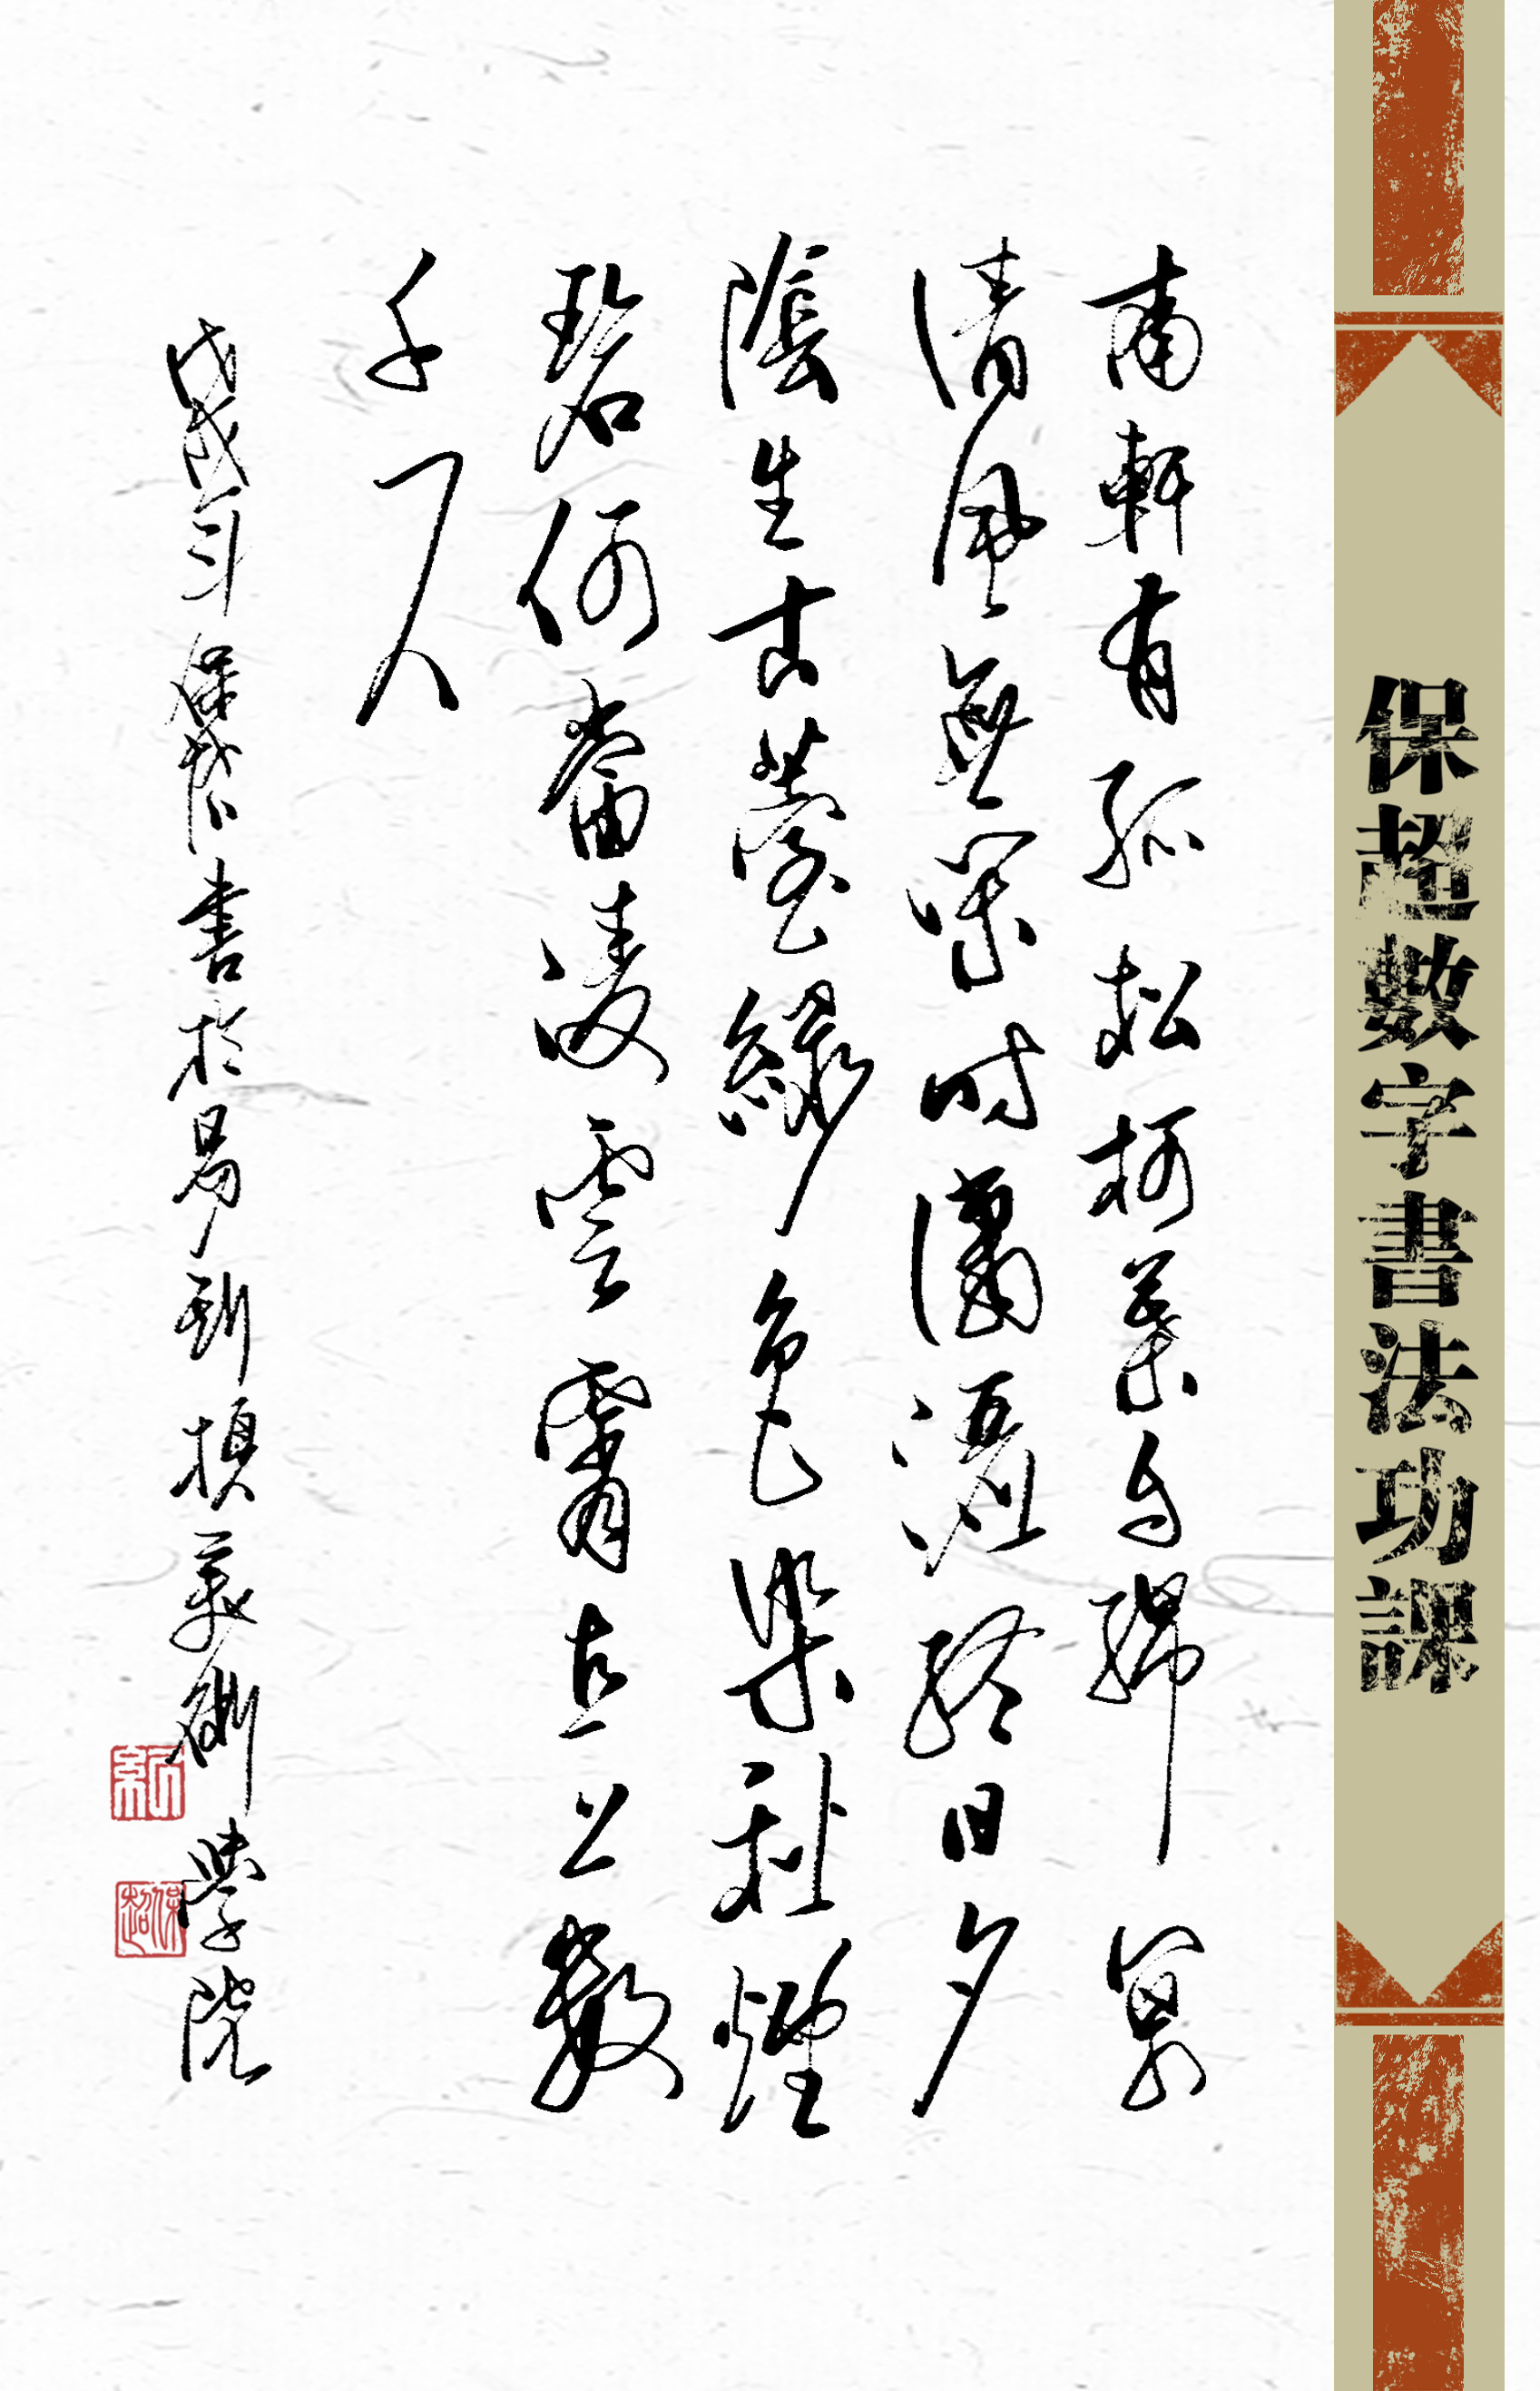 保超數字書法功課
南軒有孤松柯葉自綿冪
清風無閑時瀟灑終日夕
陰生古苔綠色染秋煙
碧何當凌雲霄直上數
千尺
戊戌年保岱書於易到損美術學院
保超